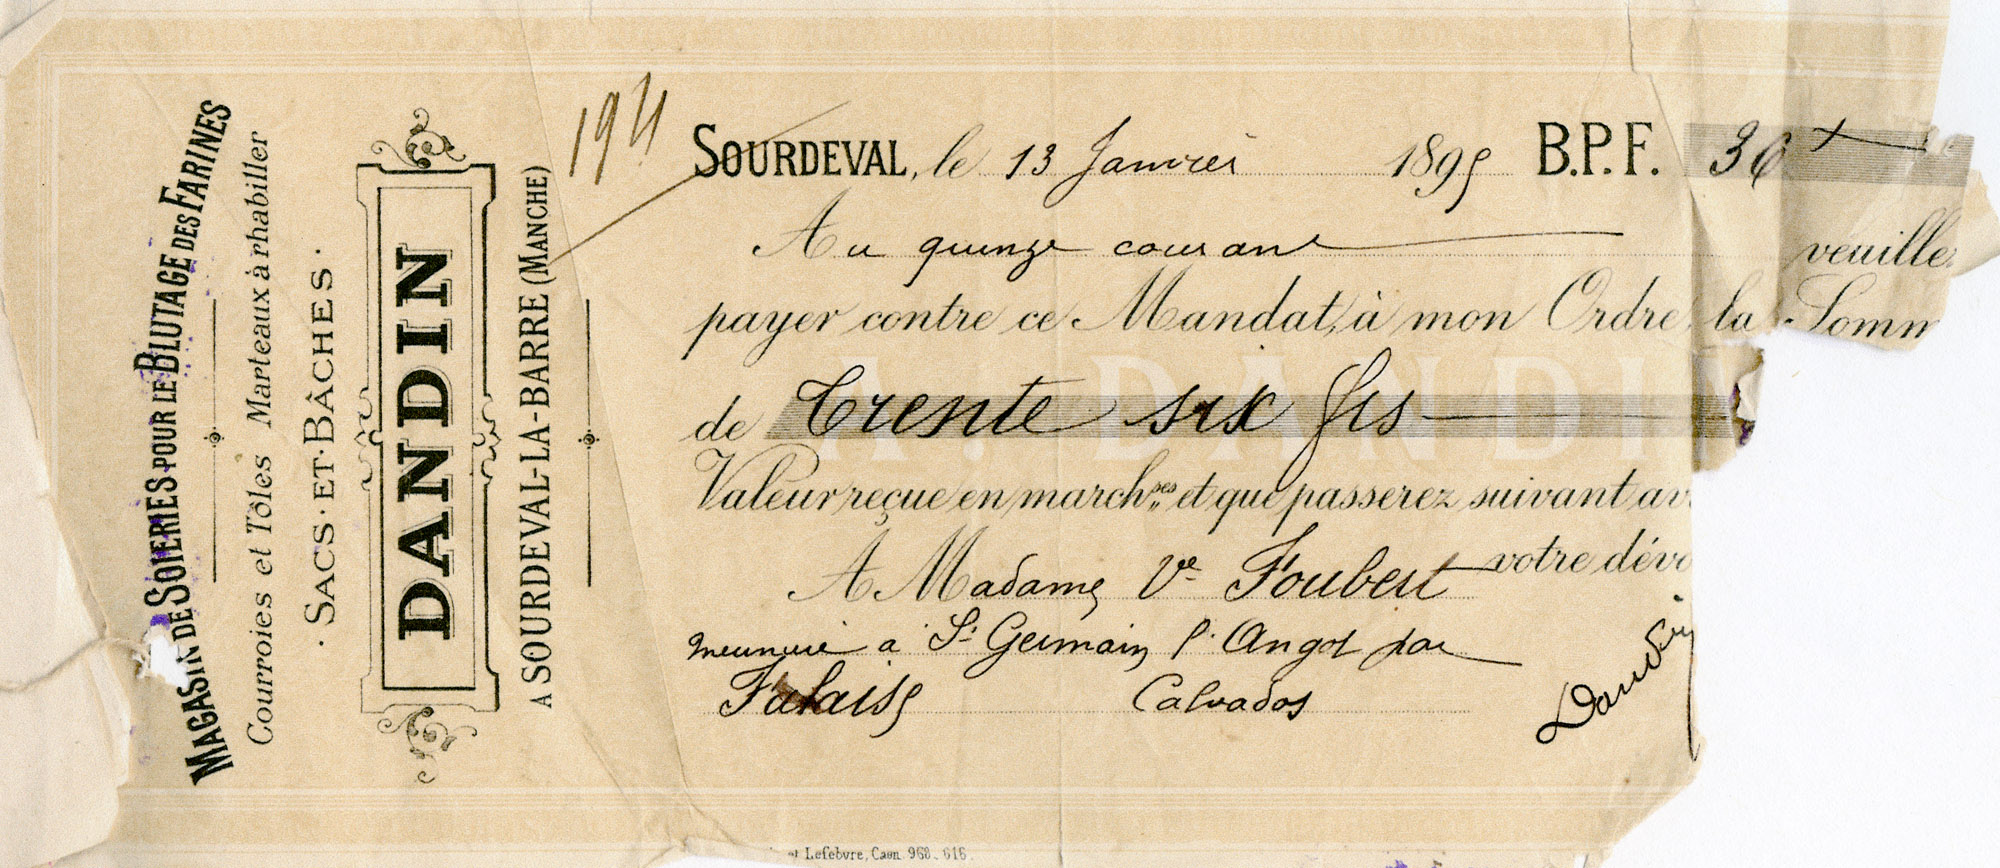 MAGASIN DE SOIERIES POUR LE BLUTAGE DES FARINES
Courroies et Tôles Marteaux à rhabiller
· SACS · ET · BÂCHES ·
DANDIN
A SOURDEVAL-LA-BARRE (MANCHE)
SOURDEVAL, le 13 Janvier 1895 B.P.F. 36
Au quinze courant veuille
payer contre ce Mandat, à mon Ordre, la Somm
A. DANDIN
de Trente six frs
Valeur reçue en march.ses et que passerez suivant av
votre dévo
A Madame Ve Foubert
meunière à St Germain l'Angot par
Falaise Calvados
Dandin
et Lefebvre, Caen. 968_616